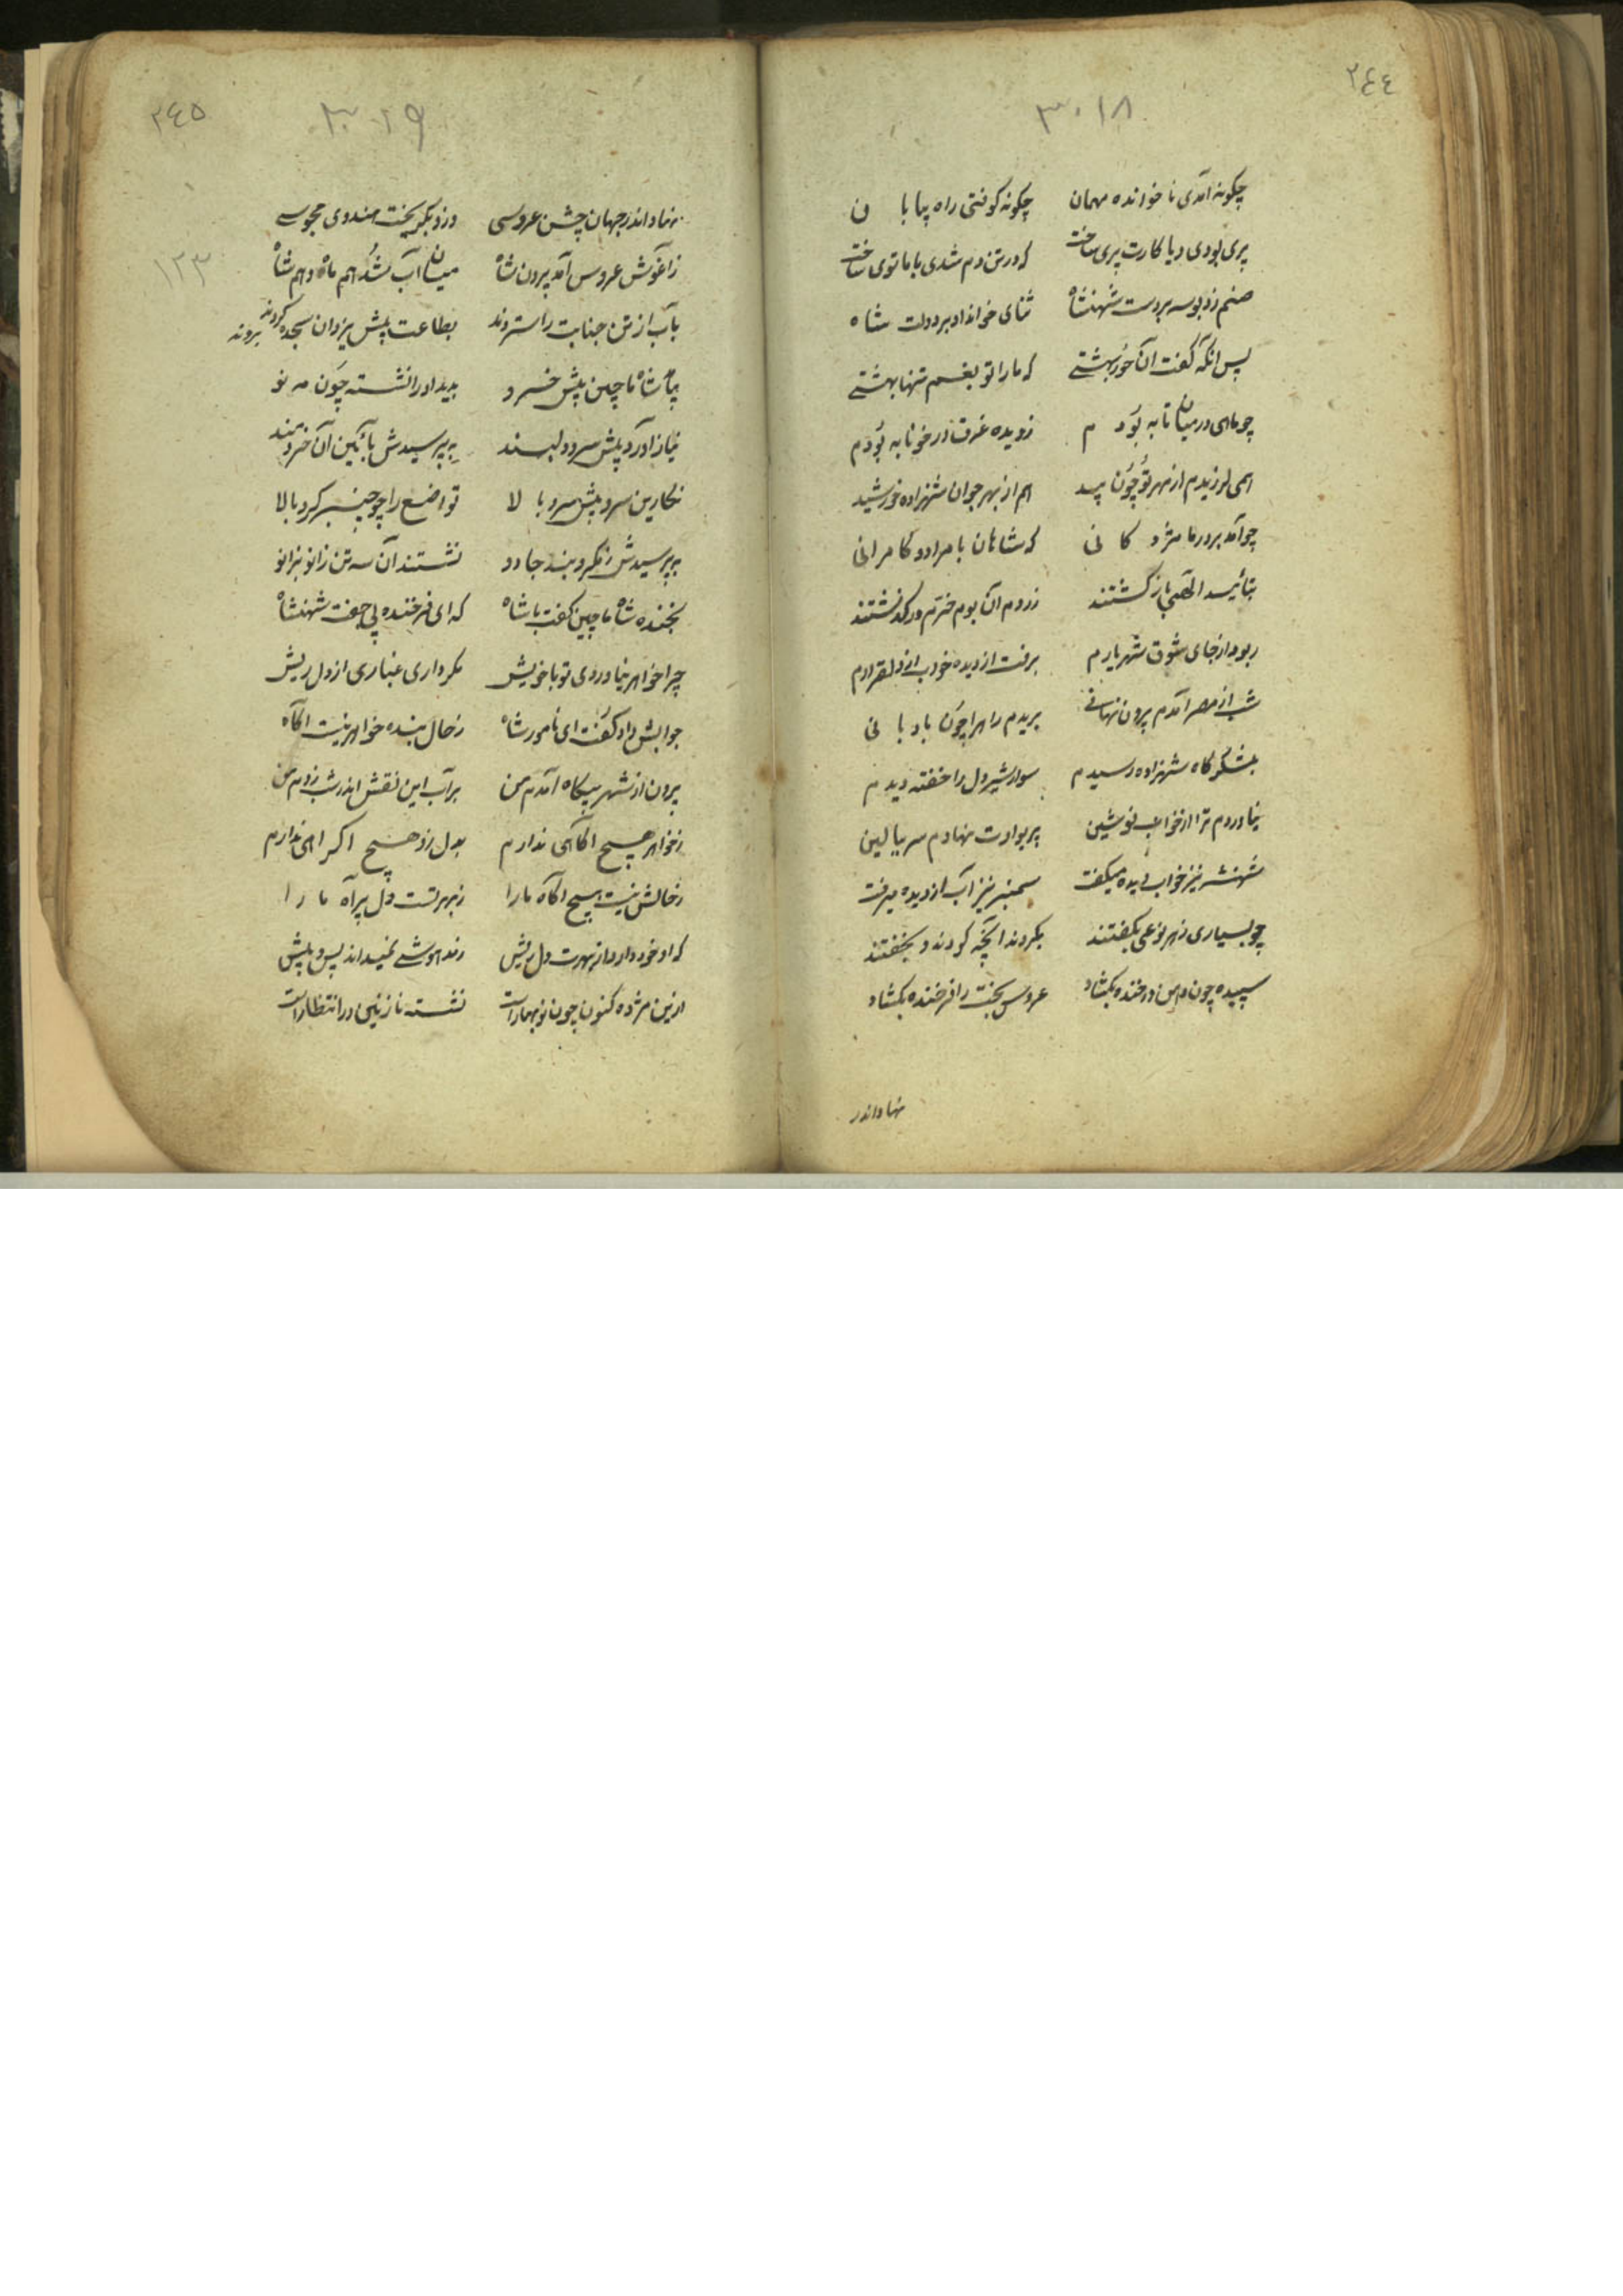 ٢٤٤
٣٠١٨
چکونه آمدی ناخوانده مهمان چکونه کوفتی راه بیابان
پری بودی و یا کارت پری ساخت که در تن دم شدی با ما توی ساخت
صنم زد بوسه بر دست شهنشاه ثنای خواند او بر دولت شاه
پس آنکه گفت آن حور بهشتی که ما را تو بغم تنها بهشتی
چو ماهی در میان تابه بودم ز دیده غرق در خونابه بودم
همی لرزیدم از مهر تو چون بید هم از بهر جوان شهزاده خورشید
چو آمد بر در ما مژدکانی که شاهان با مراد و کامرانی
بتأیید الهی باز کشتند ز روم آن بوم خرم در کذشتند
ربود از جای شوق شهریارم برفت از دیده خواب از دل قرارم
شب از مصر آمدم بیرون نهانی بریدم راه را چون بادبانی
بلشکرگاه شهزاده رسیدم سوار شیر دل را خفته دیدم
نیاوردم ترا از خواب نوشین بر بوادت نهادم سر ببالین
شهنشه نیز خواب دیده میکفت سمنبر نیز آب از دیده میرفت
چو بسیاری ز هر نوعی بکفتند بکردند آنچه کردند و بخفتند
سپیده چون در خنده بکشاد عروس بخت را فرخنده بکشاد
نهاد اندر
٢٤٥
٣٠١٩
١٢٣
نهاد اندر جهان جشن عروسی در زد بکریخت هندوی مجوسی
ز آغوش عروس آمد برون شاه میان آب شد هم ماه و هم شاه
بآب از تن جنابت را ستردند بطاعت پیش یزدان سجده کردند بردند
بیآمد شاه ماچین پیش خسرو بدید او را نشسته چون مه نو
نیاز آورد پیش سرو دلبند بپرسیدش بآئین آن خردمند
نکارین سرو پیش سرو بالا تواضع را چو چنبر کرد بالا
بپرسیدش ز مکر و بند جادو نشستند آن سه تن زانو بزانو
بخنده شاه ماچین کفت با شاه که ای فرخنده پی جفت شهنشاه
چرا خواهر نیاوردی تو با خویش مکر داری غباری از دل ریش
جوابش داد کفت ای نامور شاه ز حال بنده خواهر نیست آکاه
برون از شهر بیکاه آمدم من بر آب این نقش اندر شب زدم من
ز خواهر هیچ آکاهی ندارم بدل زو هیچ اکراهی ندارم
ز حالش نیست هیچ آکاه ما را ز بهر تست دل پر آه ما را
که او خود دارد از بهرت دل ریش ز مدهوشی نمیداند پس و پیش
ازین مژده کنون چون نوبهارست نشسته نازنین در انتظارست